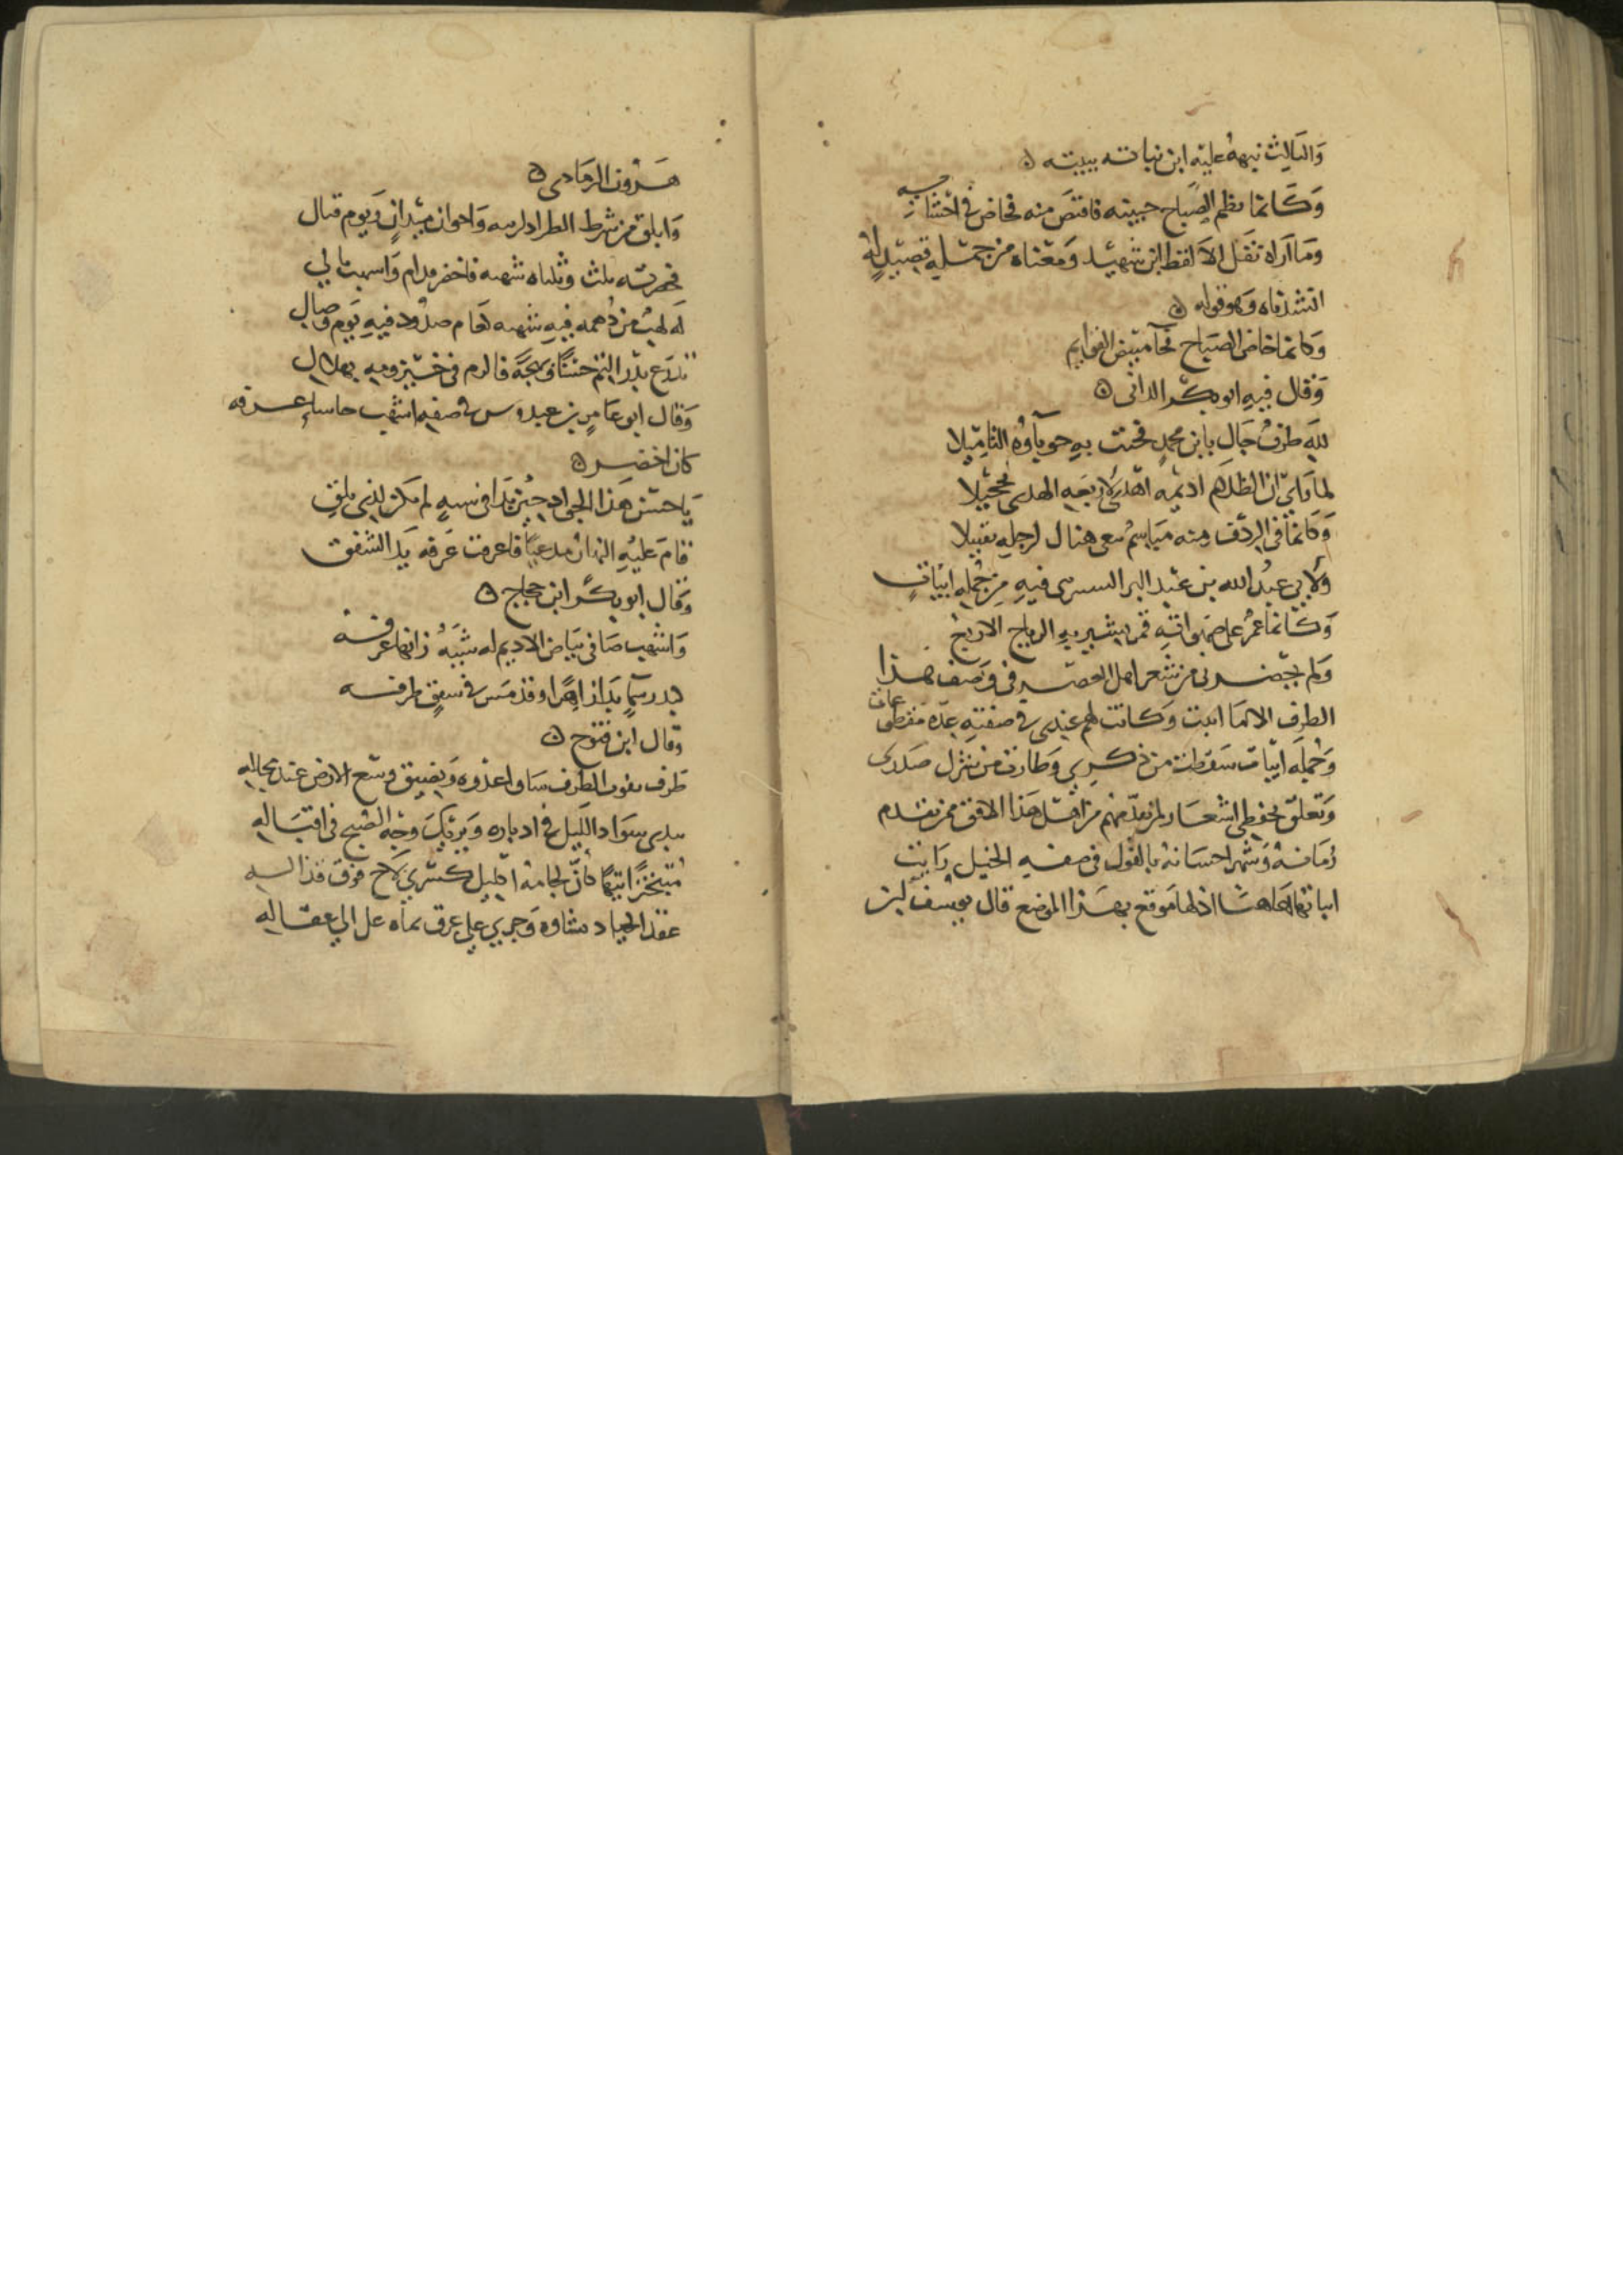 والثالث نبهه عليه ابن نباته ببيته
وكانما لطم الصباح جبينه فاقتص منه فخاض في احشائه
وما اراه نقل الا لفظ ابن شهيد ومعناه من جمله قصيد له
انشدناه وهو قوله
وكانما خاض الصباح فجآ مبيض القوايم
وقال فيه ابو بكر الدانى
لله طرف جال يا ابن محمد فحبت به حوباؤه التاميلا
لما راى ان الظلام اديمه اهدى لاربعه الهدى تحجيلا
وكانما في الردف منه مباسم تبغى هناك لرجله تقبيلا
ولابي عبد الله بن عبد البر فيه من جمله ابيات
وكانما عمر على صهواته قمر يسير به الرياح الاربع
ولم يحضرني من شعر اهل العصر في وصف هذا
الطرف الا ما اثبت وكانت لهم عندى في صفته عده مقطوعات
وجمله ابيات سقطت من ذكري وطارت من منزل صدرى
وتعلق بحفظي اشعار لمن تقدمهم من اهل هذا الافق ممن تقدم
زمانه وشهر احسانه بالقول في صفه الخيل رايت
اثباتها هاهنا اذ لها موقع بهذا الموضع قال يوسف بن
هرون الرمادى
وابلق من شرط الطراد لزينه واخوان ميدان ويوم قتال
فحمرته ثلث وثلثاه شهبه
له لهب من دهمه فيه شهبه كعام صدود فيه يوم وصال
بدر التم حسنا وبهجه في
وقال ابو عامر بن عبدوس في صفه اشهب عرفه
كان اخضر
يا حسن هذا الجواد حين بدا في شيه لم تكن لذى بلق
قام عليه النهار مدعيا فاعرفت عرفه يد الشفق
وقال ابو بكر ابن حجاج
واشهب صافى بياض الاديم له شبه زانها عرفه
كبدر سما بدا زاهرا وقد مس في شفق طرفه
وقال ابن فتوح
طرف يفوت الطرف ساو اعدوه ويضيق وسع الارض عند مجاله
يبدى سواد الليل في ادباره ويريك وجه الصبح في اقباله
متبخترا تيها كأن لجامه اكليل كسرى لاح فوق قذاله
الجياد وجرى على عرق